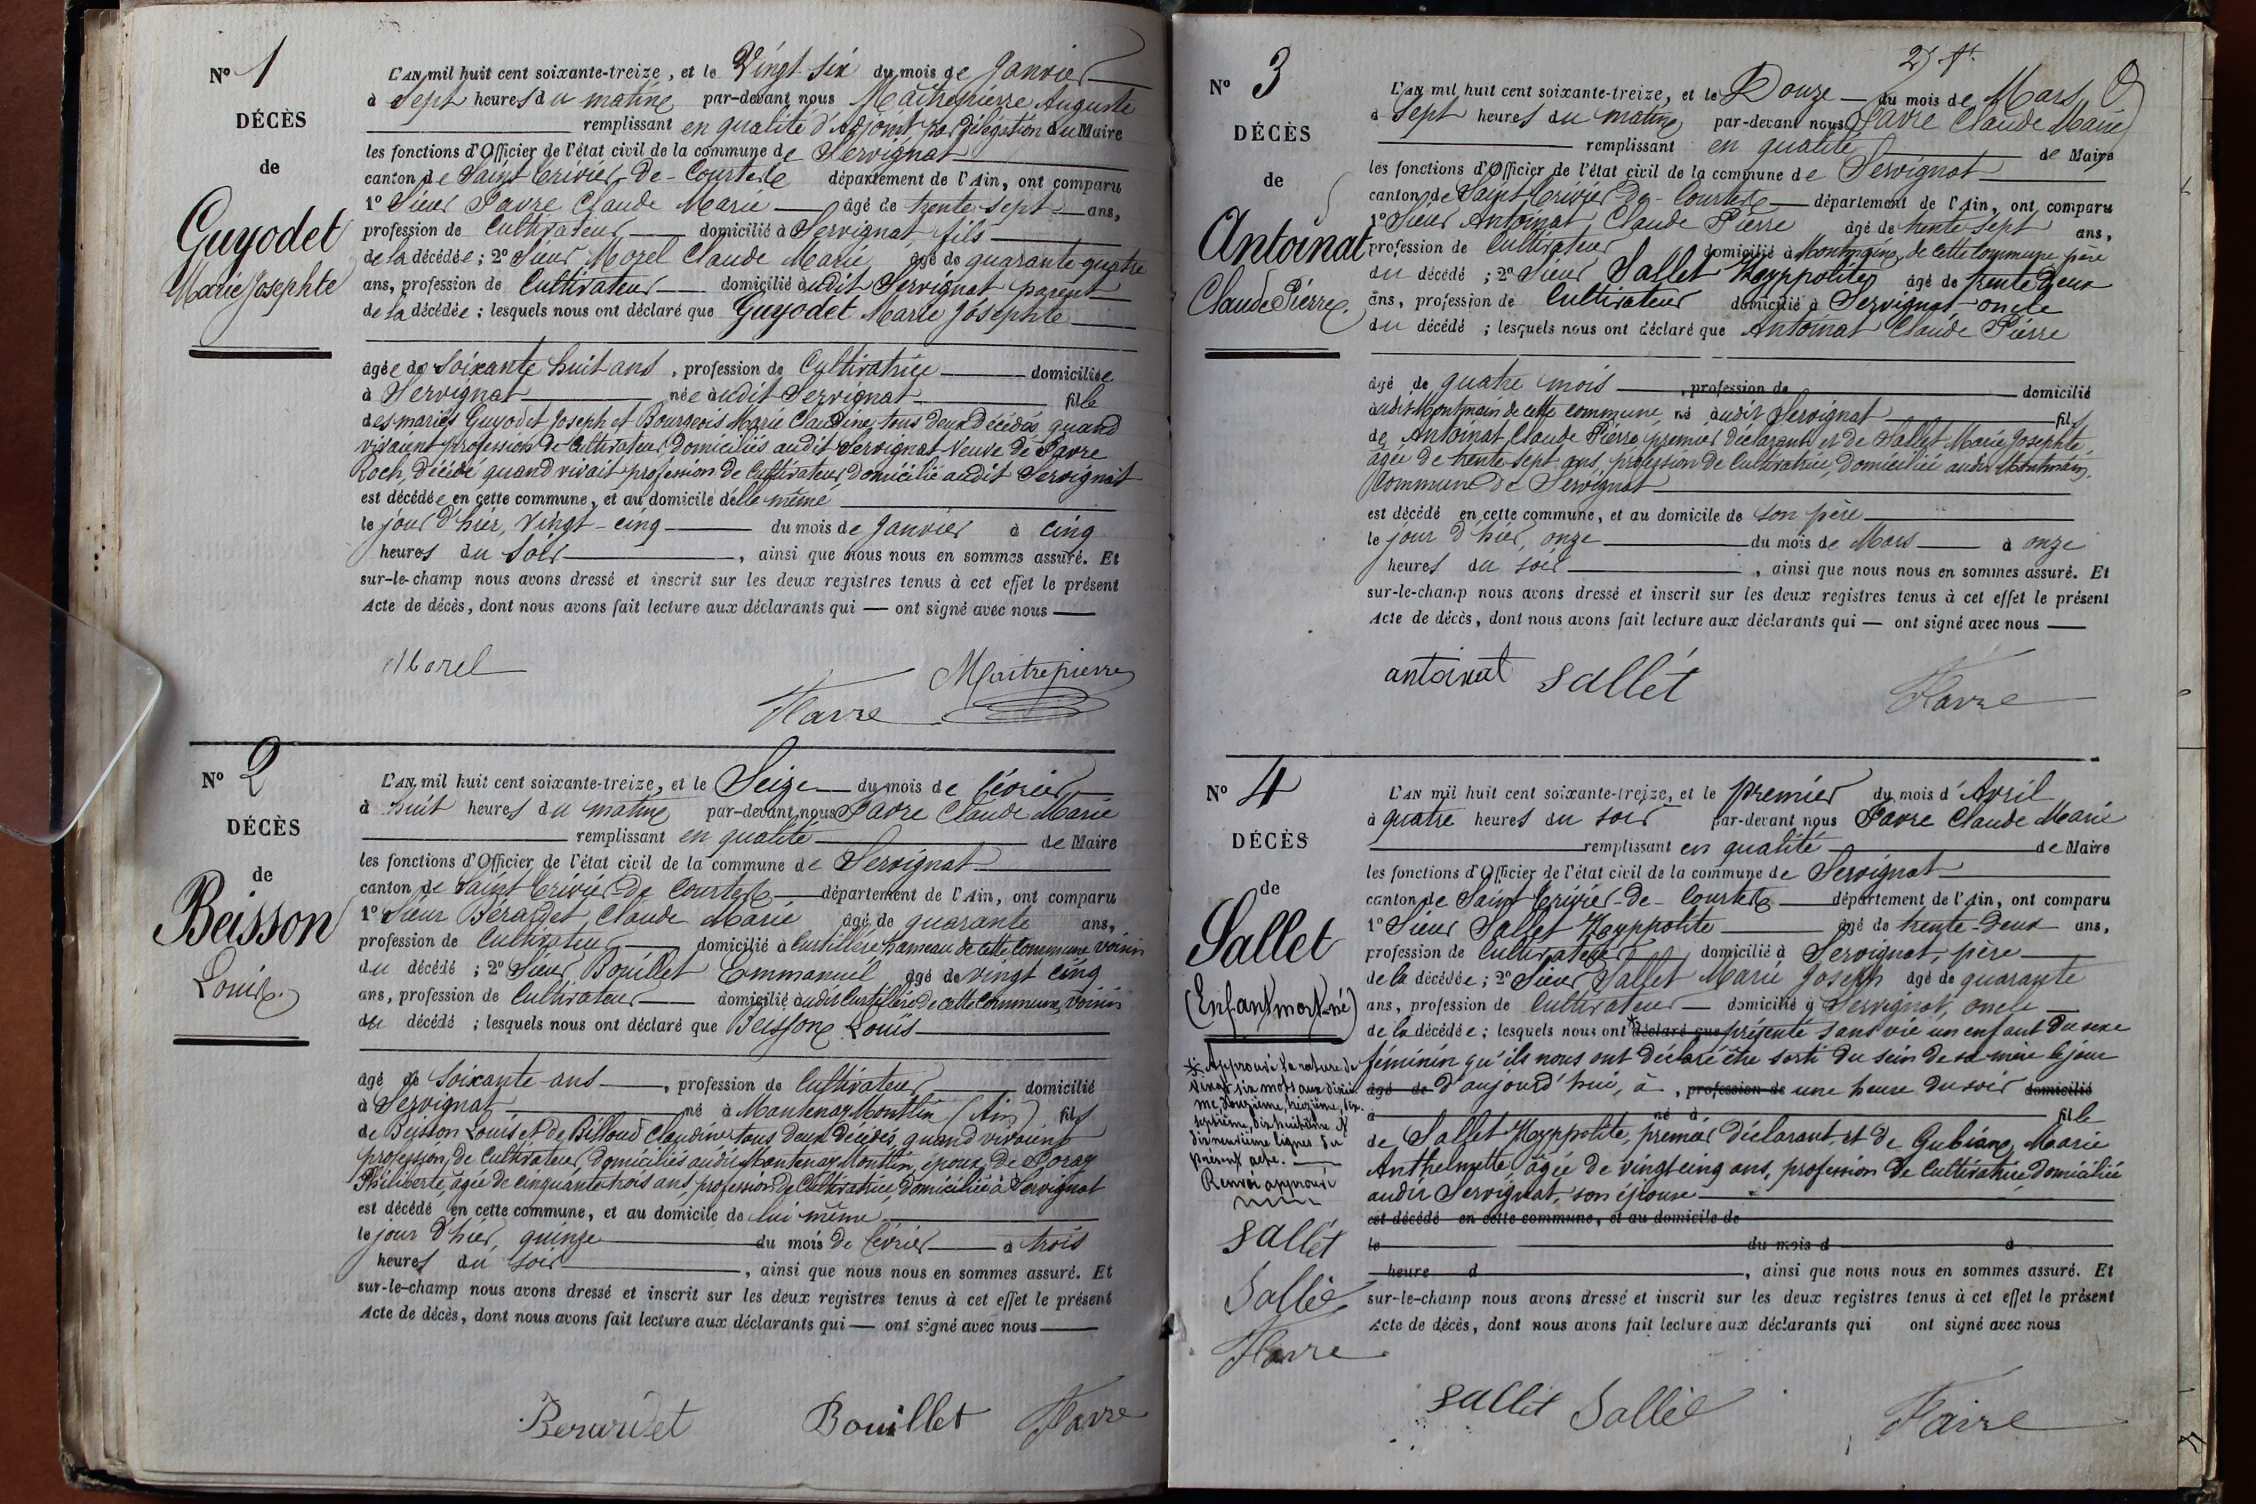 N° 1
DÉCÈS
de
Guyodet
Marie Josephte
L'AN mil huit cent soixante-treize, et le Vingt six du mois de Janvier
à Sept heures du matin par-devant nous Maîtrepierre Auguste
remplissant en qualité d'Adjoint par délégation du Maire
les fonctions d'Officier de l'état civil de la commune de Servignat
canton de Saint Trivier-de-Courtes département de l'Ain, ont comparu
1° Sieur Favre Claude Marie âgé de trente-sept ans,
profession de Cultivateur domicilié à Servignat, fils
de la décédée ; 2° Sieur Morel Claude Marie âgé de quarante quatre
ans, profession de Cultivateur domicilié audit Servignat parent
de la décédée ; lesquels nous ont déclaré que Guyodet Marie Josephte
âgée de soixante huit ans, profession de Cultivatrice domiciliée
à Servignat née audit Servignat fille
des mariés Guyodet Joseph et Bourgeois Marie Claudine, tous deux décédés, quand
vivaient profession de Cultivateurs domiciliés audit Servignat Veuve de Favre
Roch, décédé quand vivait profession de Cultivateur domicilié audit Servignat
est décédée en cette commune, et au domicile d'elle même
le jour d'hier, vingt-cinq du mois de Janvier à cinq
heures du soir, ainsi que nous nous en sommes assuré. Et
sur-le-champ nous avons dressé et inscrit sur les deux registres tenus à cet effet le présent
Acte de décès, dont nous avons fait lecture aux déclarants qui — ont signé avec nous —
Morel
Favre
Maitrepierre
N° 2
DÉCÈS
de
Beisson
Louis
L'AN mil huit cent soixante-treize, et le Seize du mois de février
à huit heures du matin par-devant nous Favre Claude Marie
remplissant en qualité de Maire
les fonctions d'Officier de l'état civil de la commune de Servignat
canton de Saint Trivier de Courtes département de l'Ain, ont comparu
1° Sieur Berardet Claude Marie âgé de quarante ans,
profession de Cultivateur domicilié à hameau de cette Commune voisin
du décédé ; 2° Sieur Bouillet Emmanuel âgé de vingt cinq
ans, profession de Cultivateur domicilié audit de cette Commune, voisin
du décédé ; lesquels nous ont déclaré que Beisson Louis
âgé de soixante ans, profession de Cultivateur domicilié
à Servignat né à Mantenay Montlin (Ain) fils
de Beisson Louis et de Billoud Claudine tous deux décédés, quand vivaient
profession de Cultivateurs domiciliés audit Mantenay Montlin, époux de Poray
Philiberte, âgée de cinquante trois ans, profession de Cultivatrice, domiciliée à Servignat
est décédé en cette commune, et au domicile de lui même
le jour d'hier, quinze du mois de février à trois
heures du soir, ainsi que nous nous en sommes assuré. Et
sur-le-champ nous avons dressé et inscrit sur les deux registres tenus à cet effet le présent
Acte de décès, dont nous avons fait lecture aux déclarants qui — ont signé avec nous —
Berardet Bouillet Favre
N° 3
DÉCÈS
de
Antoinat
Claude Pierre
L'AN mil huit cent soixante-treize, et le Douze du mois de Mars
à sept heures du matin par-devant nous Favre Claude Marie
remplissant en qualité de Maire
les fonctions d'Officier de l'état civil de la commune de Servignat
canton de Saint Trivier de-Courtes département de l'Ain, ont comparu
1° Sieur Antoinat Claude Pierre âgé de trente-sept ans,
profession de Cultivateur domicilié à Montmain, de cette Commune père
du décédé ; 2° Sieur Sallet Hayppolite âgé de trente deux
ans, profession de Cultivateur domicilié à Servignat - oncle
du décédé ; lesquels nous ont déclaré que Antoinat Claude Pierre
âgé de quatre mois, profession de domicilié
audit Montmain de cette commune né audit Servignat fils
de Antoinat Claude Pierre, premier déclarant, et de Sallet Marie Josephte
âgée de trente-sept ans, profession de Cultivatrice, domiciliée audit Montmain,
commune de Servignat
est décédé en cette commune, et au domicile de son père
le jour d'hier, onze du mois de Mars à onze
heures du soir, ainsi que nous nous en sommes assuré. Et
sur-le-champ nous avons dressé et inscrit sur les deux registres tenus à cet effet le présent
Acte de décès, dont nous avons fait lecture aux déclarants qui — ont signé avec nous —
antoinat sallét Favre
N° 4
DÉCÈS
de
Sallet
(Enfant mort-né)
* Approuvé la rature de
vingt six mots aux dixiè-
me, douzième, treizième, dix-
septième, dix huitième et
dix neuvième lignes du
présent acte.
Renvoi approuvé
sallét
Sallet
Favre
L'AN mil huit cent soixante-treize, et le premier du mois d'Avril
à quatre heures du soir par-devant nous Favre Claude Marie
remplissant en qualité de Maire
les fonctions d'Officier de l'état civil de la commune de Servignat
canton de Saint Trivier-de-Courtes département de l'Ain, ont comparu
1° Sieur Sallet Hayppolite âgé de trente-deux ans,
profession de Cultivateur domicilié à Servignat, père
de la décédée ; 2° Sieur Sallet Marie Joseph âgé de quarante
ans, profession de Cultivateur domicilié à Servignat, oncle
de la décédée ; lesquels nous ont * déclaré que présenté sans vie un enfant du sexe
féminin qu'ils nous ont déclaré être sorti du sein de sa mère le jour
âgé de d'aujourd'hui, à, profession de une heure du soir domicilié
à né à fille
de Sallet Hayppolite, premier déclarant, et de Gubian Marie
Anthelmette âgée de vingt cinq ans, profession de Cultivatrice domiciliée
audit Servignat, son épouse
est décédé en cette commune, et au domicile de
le du mois d à
heure d, ainsi que nous nous en sommes assuré. Et
sur-le-champ nous avons dressé et inscrit sur les deux registres tenus à cet effet le présent
Acte de décès, dont nous avons fait lecture aux déclarants qui ont signé avec nous
sallét Sallet Favre